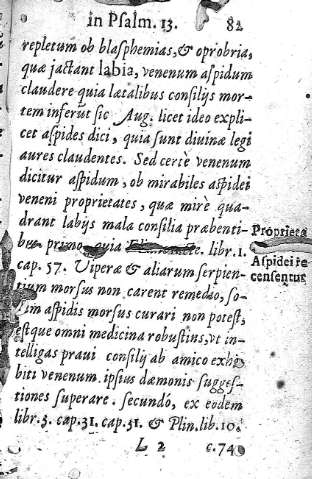 in Psalm. 13. 82
repletum ob blasphemias, & oprobria,
quæ jactant labia, venenum aspidum
claudere quia lætalibus consilijs mor-
tem inferūt sic Aug. licet ideo expli-
cet aspides dici, quia sunt divinæ legi
aures claudentes. Sed certè venenum
dicitur aspidum, ob mirabiles aspidei
veneni proprietates, quæ mirè qua-
drant labijs mala consilia præbenti-
bus primo quia libr. 1.
Proprieta
cap. 57. Viperæ & aliarum serpien-
Aspidei
tium morsus non carent remedio, so-
consentur
lum aspidis morsus curari non potest,
estque omni medicina robustius, vt in-
telligas praui consilij ab amico exhi-
biti venenum ipsius dæmonis sugges-
tiones superare. secundò, ex eodem
libr. 3. cap. 31. cap. 51. & Plin. lib. 10.
L 2 c. 74